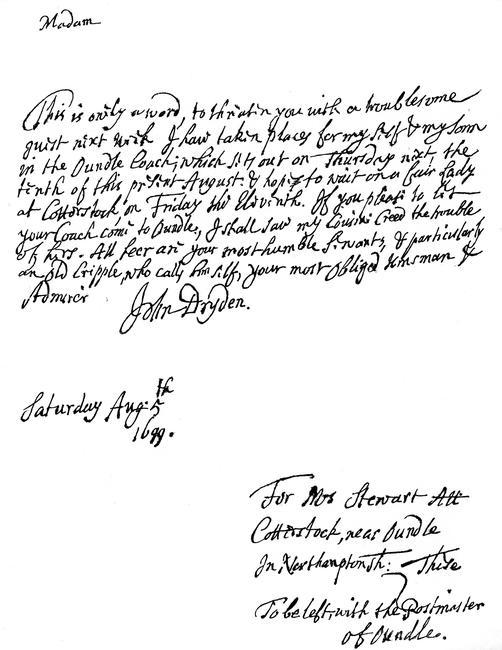 Madam
This is only a word, to threaten you with a troublesome
guest next week. I have taken places for my self & my sonn
in the Oundle Coach, which sets out on Thursday next, the
tenth of this present August: & hope to wait on a fair Lady
at Cotterstock, on Friday the Eleventh. If you please to let
your Coach come to Oundle, I shall save my Cousin Creed the trouble
of hers. All heer are your most humble Servants, & particularly
an old Cripple, who calls himself, your most Obliged Kinsman &
Admirer
John Dryden.
Saturday Aug: 5th
1699.
For Mrs Stewart Att
Cotterstock, near Oundle
In Northamptonsh: These
To be left, with the Postmaster
of Oundle.